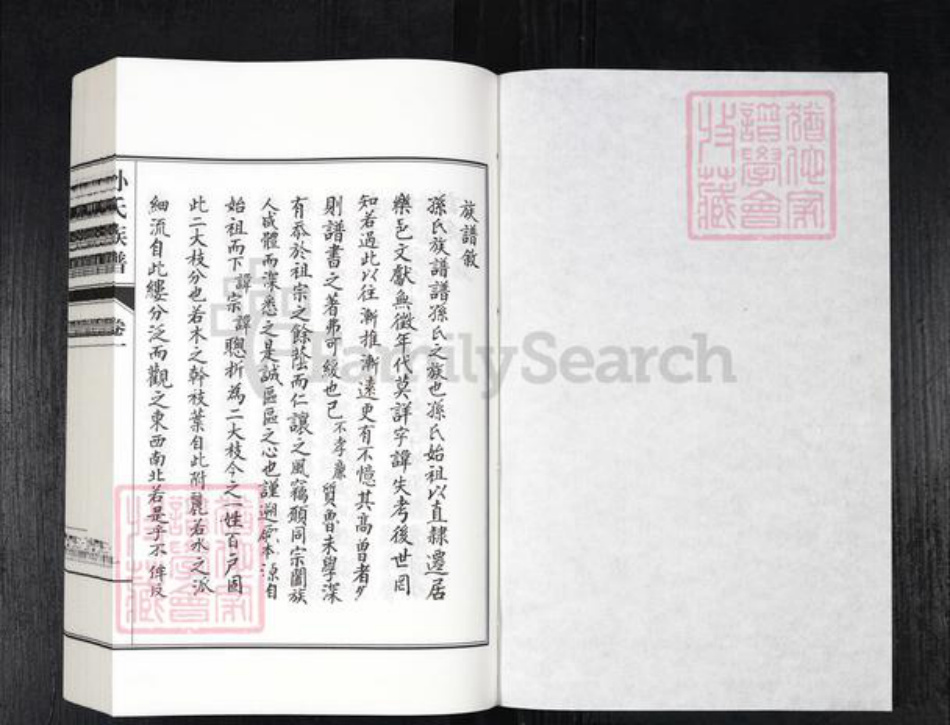 族譜敘
孫氏族譜譜孫氏之族也孫氏始祖以直隸遷居
樂邑文獻無徵年代莫詳字諱失考後世罔
知若過此以往漸推漸遠更有不憶其高曾者矣
則譜書之著弗可緩也已不孝廉質魯未學深
有忝於祖宗之餘蔭而仁讓之風竊願同宗闔族
人咸體而深悉之是誠區區之心也謹遡原本源自
始祖而下諱宗諱聰析為二大枝今之一姓百戶固
此二大枝分也若木之幹枝葉自此附麗若水之派
細流自此縷分泛而觀之東西南北若是乎不侔反
孙氏族譜
卷一
FamilySearch
猶他家
譜學會
收藏
猶他家
譜學會
收藏